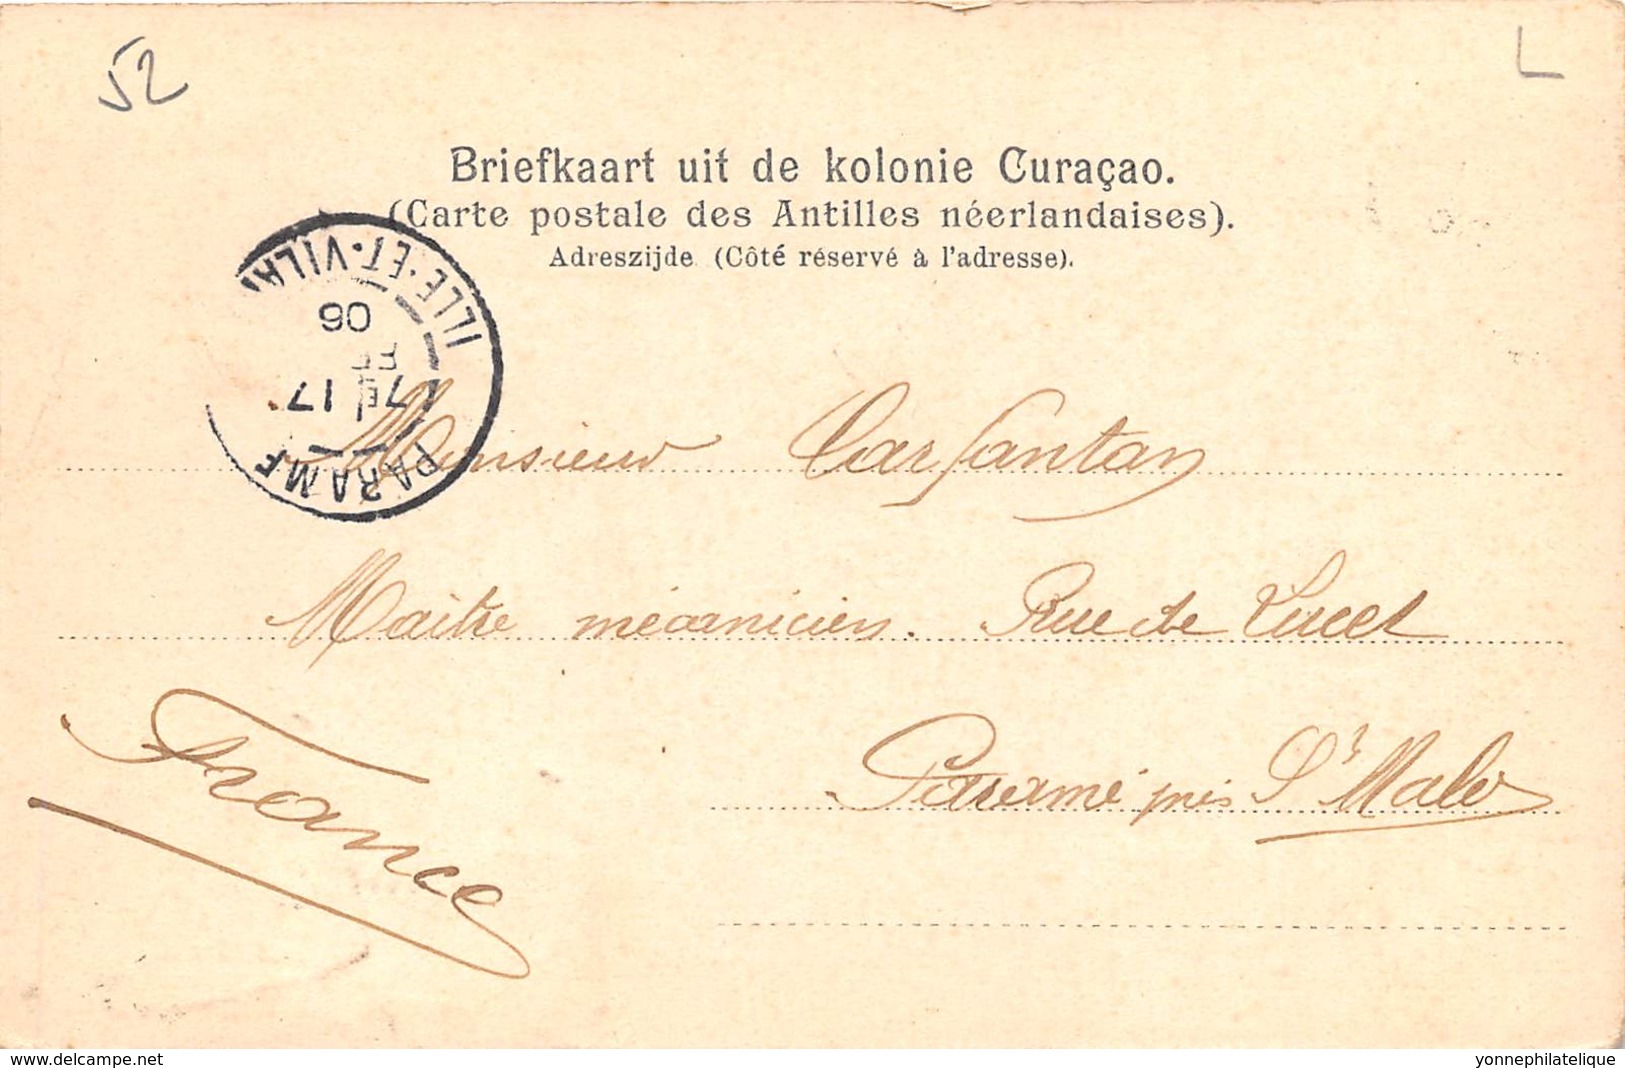 52
L
Briefkaart uit de kolonie Curaçao.
(Carte postale des Antilles néerlandaises).
Adreszijde (Côté réservé à l'adresse).
ILLE-ET-VILAI
06
7E 17
PARAME
Monsieur Carfantan
Maitre mécanicien. Rue de Lucet
Paramé près St Malo
France
www.delcampe.net
yonnephilatelique